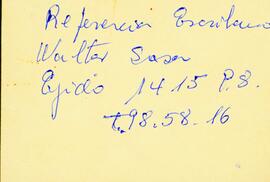 Referencia Escribano
Walter Sosa
Ejido 1415 P.8.
t.98.58.16